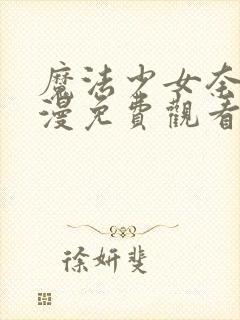 魔法少女奈
漫免費觀看
徐妍斐